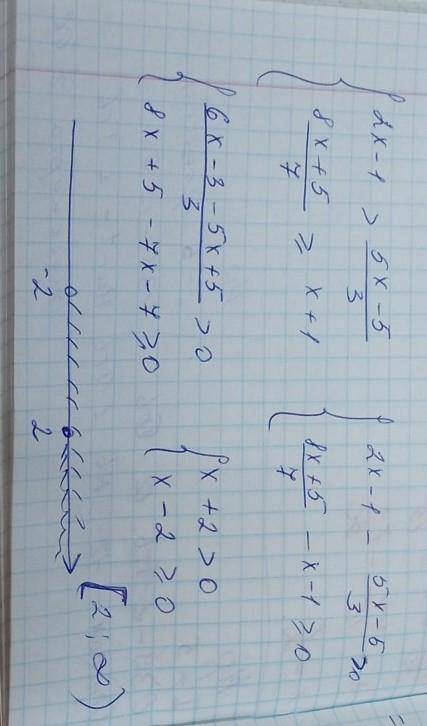 { 2x - 1 > (5x - 5)/3
{ (8x + 5)/7 ≥ x + 1
{ 2x - 1 - (5x - 5)/3 > 0
{ (8x + 5)/7 - x - 1 ≥ 0
{ (6x - 3 - 5x + 5)/3 > 0
{ 8x + 5 - 7x - 7 ≥ 0
{ x + 2 > 0
{ x - 2 ≥ 0
-2 2
[2; ∞)